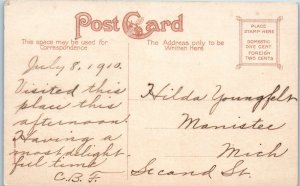 Post Card
This space may be used for
Correspondence
The Address only to be
Written Here
PLACE
STAMP HERE
DOMESTIC
ONE CENT
FOREIGN
TWO CENTS
July 8, 1910.
Visited this
place this
afternoon!
Having a
most delight-
ful time
C.B.F.
Hilda Youngfelt
Manistee
Mich
Second St.